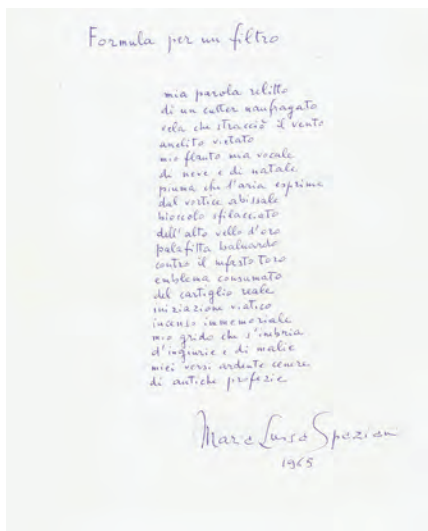 Formula per un filtro
mia parola relitto
di un cutter naufragato
vela che stracciò il vento
anelito vietato
mio flauto ma vocale
di neve e di natale
piuma che l'aria esprime
dal vortice abissale
bioccolo sfilacciato
dell'alto vello d'oro
palafitta baluardo
contro il infesto toro
emblema consumato
del cartiglio reale
iniziazione viatico
incenso immemoriale
mio grido che s'imbria
d'ingiurie e di malie
miei versi ardente cenere
di antiche profezie
Maria Luisa Spaziani
1965